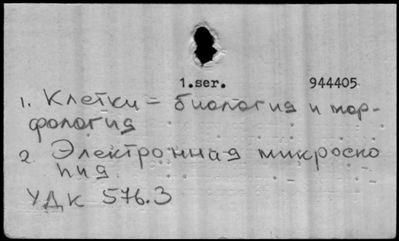 1.ser. 944405
1. Клетки = биология и мор-
фология
2. Электронная микроско
пия
УДК 576.3